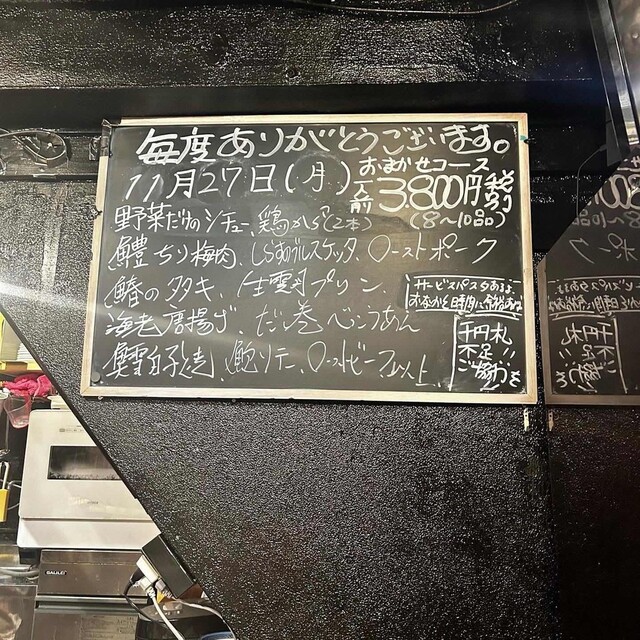 毎度ありがとうございます。
11月27日(月)
おまかせコース
一人前 3,800円 税込
(8〜10品)
野菜だけのシチュー、鶏から(2本)
鱧ちり梅肉、しらすのブルスケッタ、ローストポーク
鰆のタタキ、生雲丹プリン、
海老唐揚げ、だし巻べっこうあん
鱈白子焼、鮑ソテー、ローストビーフ 以上
サービスパスタあるよ、
千円札
不足!!
ご協力を
SALILEI